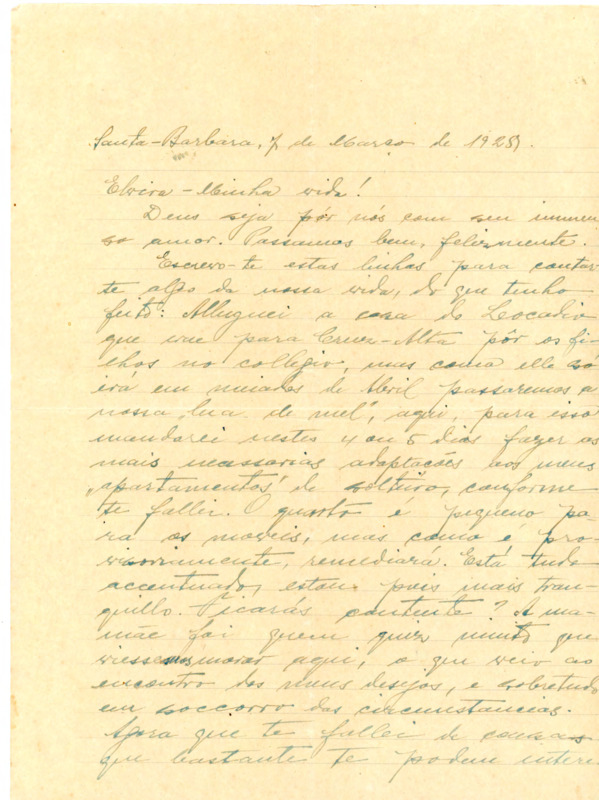 Santa-Barbara, 7 de Março de 1925.
Elvira - Minha vida!
Deus seja pór nós com seu immen
so amor. Passamos bem, felizmente.
Escrevo-te estas linhas para contar
te algo da nossa vida, do que tenho
feito: Alluguei a casa do Leocadio
que vae para Cruz-Alta pôr os fi-
lhos no collegio, mas como elle só
irá em meiados de Abril passaremos a
nossa „lua de mel", aqui, para isso
mandarei nestes 4 ou 5 dias fazer as
mais necessarias adaptações aos meus
„apartamentos" de solteiro, conforme
te fallei. O quarto e piqueno pa-
ra os moveis, mas como é pro-
visoriamente, remediará. Está tudo
accentuado, estou pois mais tran-
quillo. Ficarás contente? A ma-
mãe foi quem quiz muito que
viessemos morar aqui, o que veio ao
encontro dos meus desejos, e sobretudo
em soccorro das circumstancias.
Agora que te fallei de cousas
que bastante te podem intere